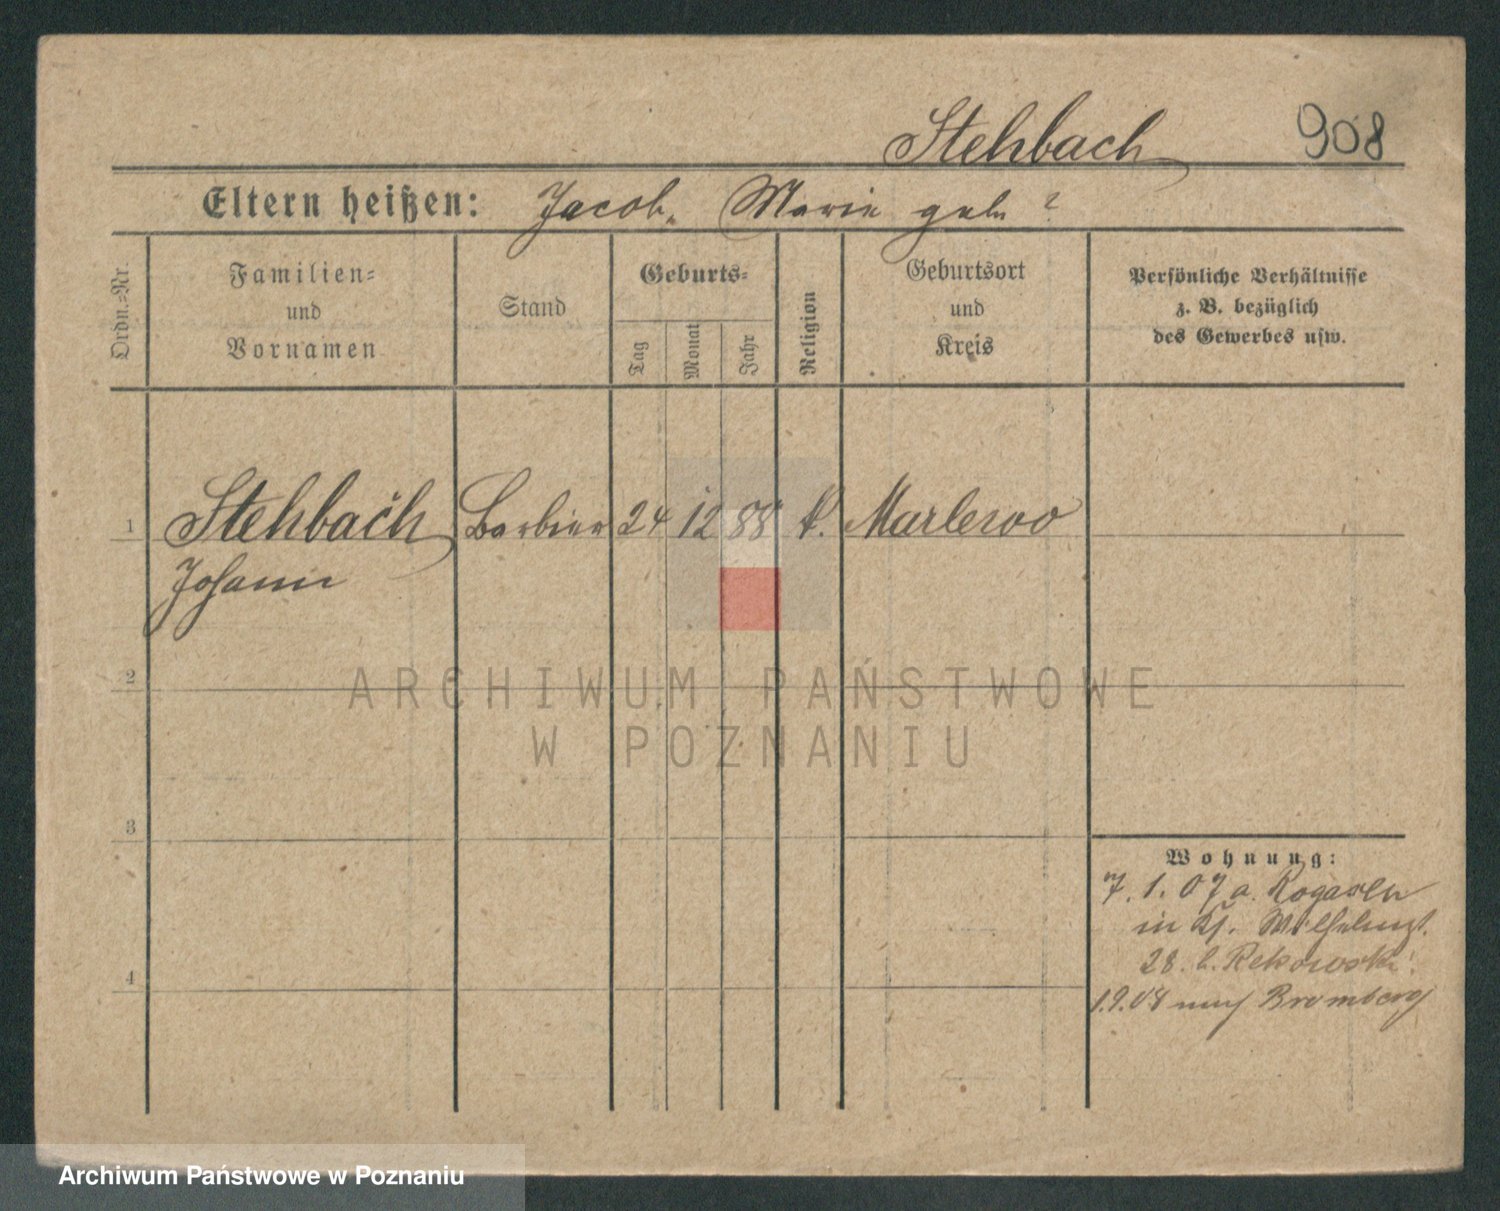 Stehbach 908
Eltern heißen: Jacob, Marie geb. ?
Ordn.=Nr.
Familien=
und
Vornamen
Stand
Geburts=
Tag
Monat
Jahr
Religion
Geburtsort
und
Kreis
Persönliche Verhältnisse
z. B. bezüglich
des Gewerbes usw.
1 Stehbach Barbier 24 12 88 k. Marlewo
Johann
2
3
4
Wohnung:
7. 1. 07 a. Rogasen
in Kf. Wilhelmst.
28. b. Rekowski.
1.9.08 nach Bromberg
ARCHIWUM PAŃSTWOWE
W POZNANIU
Archiwum Państwowe w Poznaniu